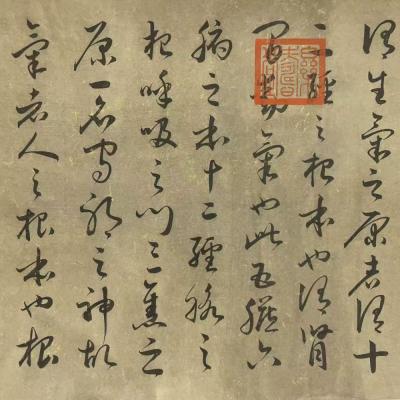 謂生氣之原者謂十
二經之根本也謂腎
間動氣也此五臟六
腑之本十二經脉之
根呼吸之門三焦之
原一名守邪之神故
氣者人之根本也根